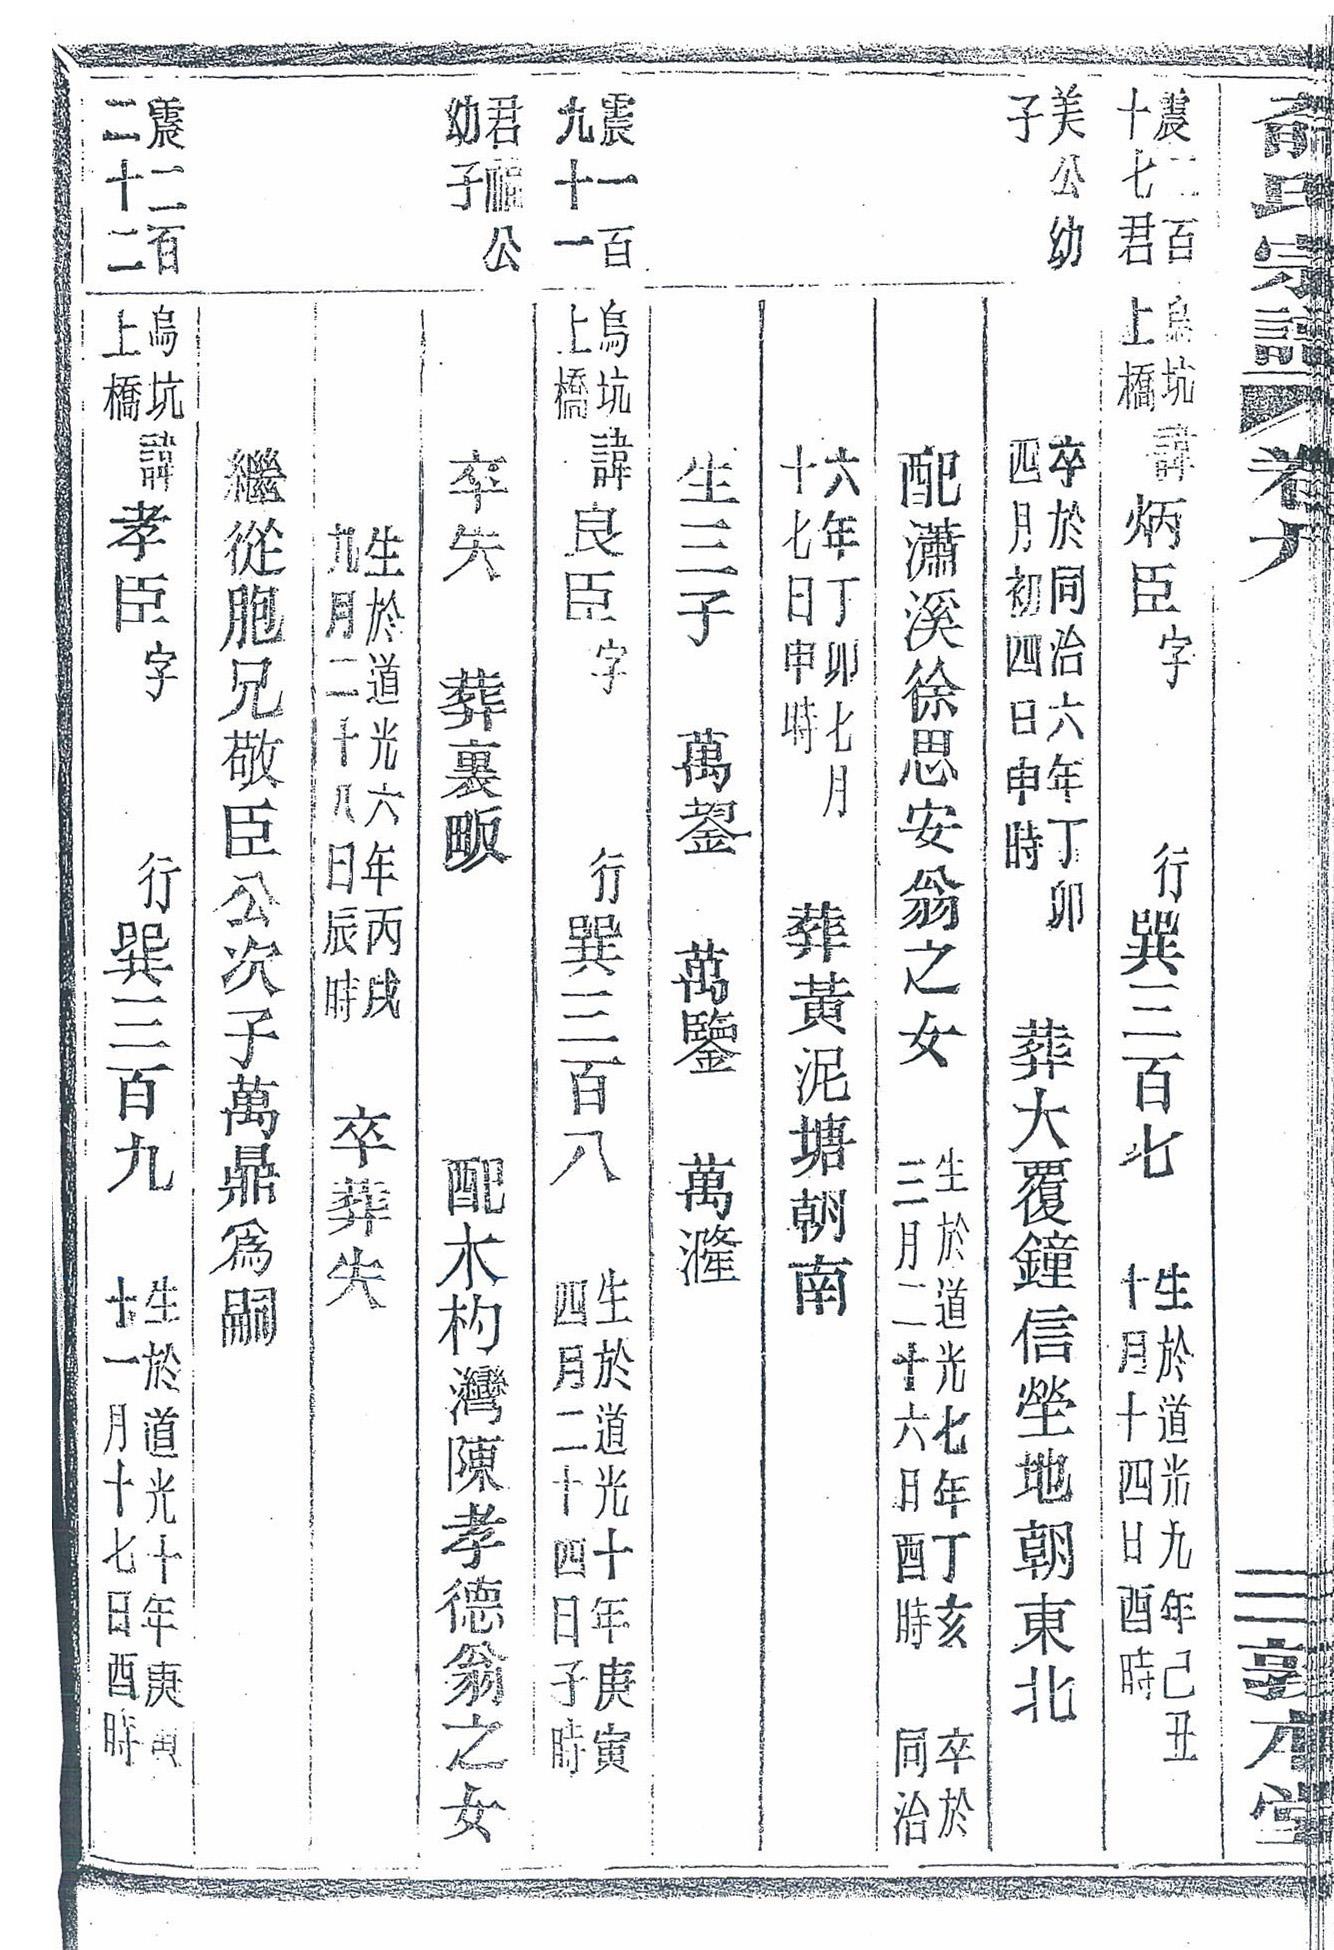 俞氏宗譜 卷九 三 敦本堂
震二百
十七君
美公幼
子
烏坑
上橋
諱炳臣字 行巽三百七
生於道光九年己丑
十月十四日酉時
卒於同治六年丁卯
四月初四日申時
葬大覆鐘信塋地朝東北
配瀟溪徐思安翁之女
生於道光七年丁亥
三月二十六日酉時
卒於
同治
六年丁卯七月
十七日申時
葬黃泥塘朝南
生三子 萬鋆 萬鑒 萬漋
震一百
九十一
君福公
幼子
烏坑
上橋
諱良臣字 行巽三百八
生於道光十年庚寅
四月二十四日子時
卒失 葬裏畈 配木杓灣陳孝德翁之女
生於道光六年丙戌
九月二十八日辰時
卒葬失
繼從胞兄敬臣公次子萬鼎為嗣
震二百
二十二
烏坑
上橋
諱孝臣字 行巽三百九
生於道光十年庚寅
十一月十七日酉時